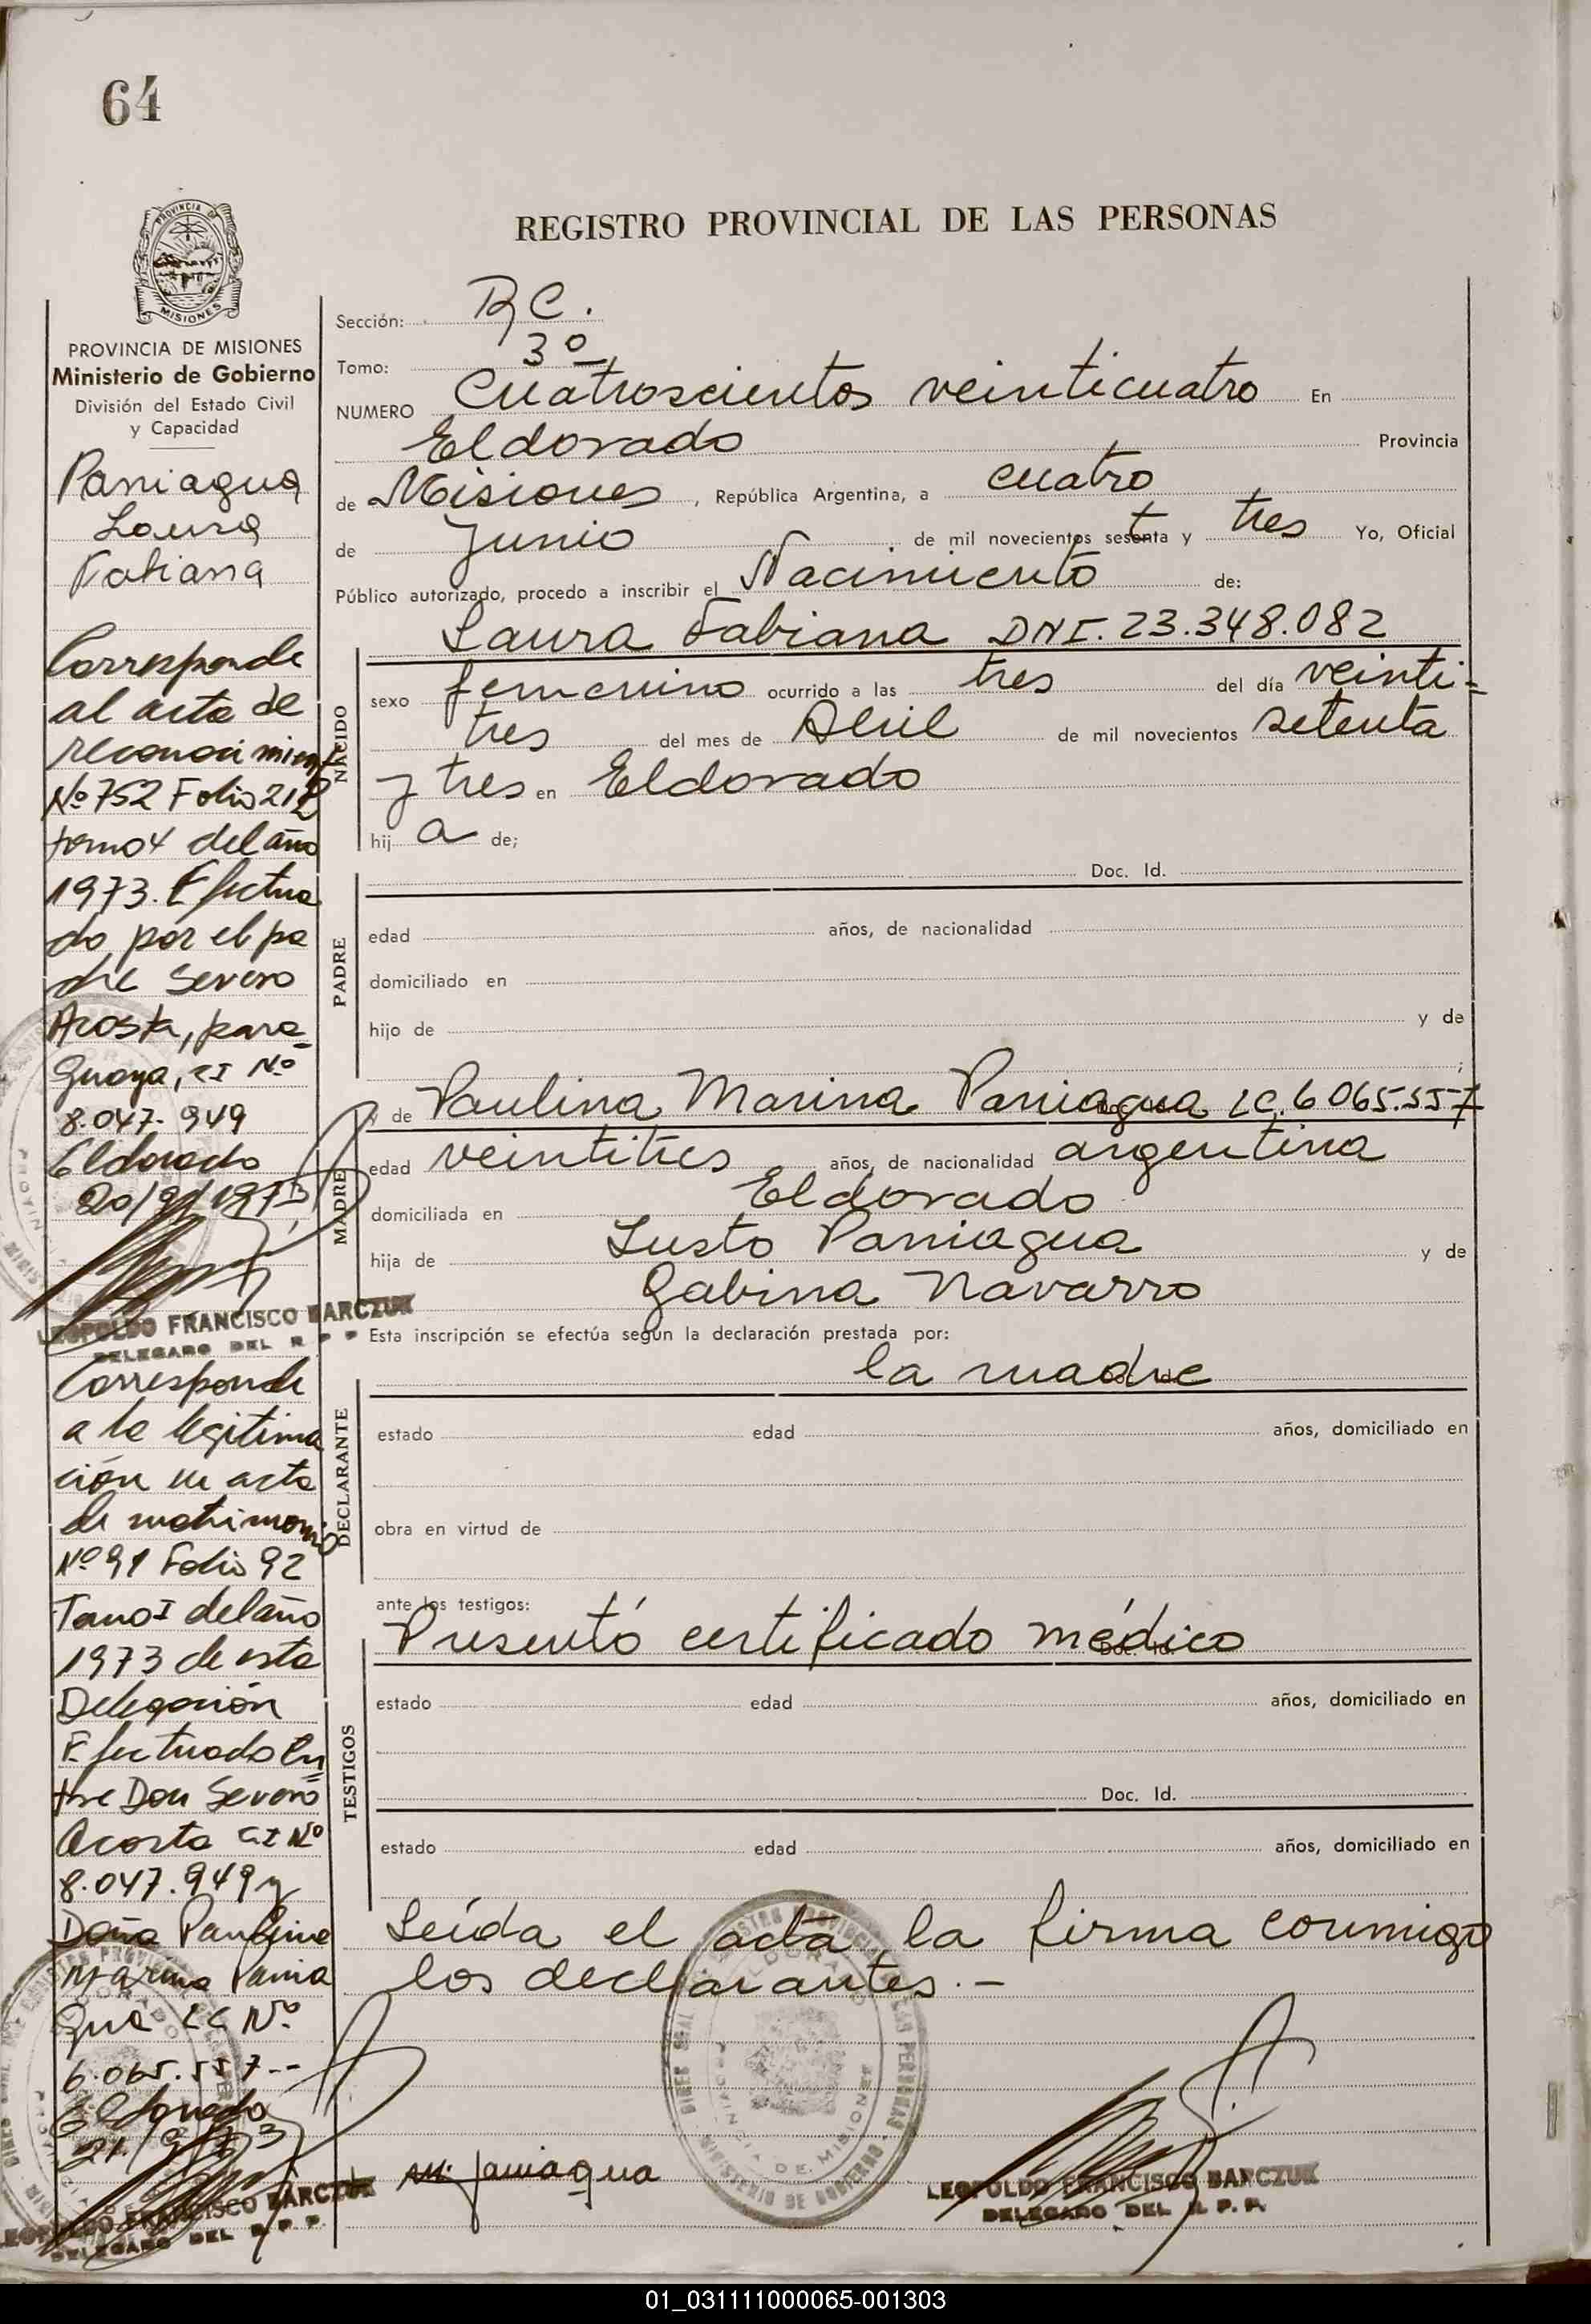 64
PROVINCIA DE
MISIONES
PROVINCIA DE MISIONES
Ministerio de Gobierno
División del Estado Civil
y Capacidad
Paniagua
Laura
Fabiana
Corresponde
al acta de
reconocimient
Nº 752 Folio 212
tomo 4 del año
1973. Efectua
do por el pa
dre Severo
Acosta, para
guaya, CI Nº
8.047.949
Eldorado
20/9/1973
LEOPOLDO FRANCISCO BARCZUK
DELEGADO DEL R. P. P.
Corresponde
a la legitima
ción en acta
de matrimonio
Nº 91 Folio 92
Tomo I del año
1973 de esta
Delegación
Efectuado En
tre Don Severo
Acosta CI Nº
8.047.949 y
Doña Paulina
Marina Pania
gua LC Nº
6.065.557--
Eldorado
LEOPOLDO FRANCISCO BARCZUK
DELEGADO DEL R. P. P.
REGISTRO PROVINCIAL DE LAS PERSONAS
Sección: RC.
Tomo: 3º
NUMERO Cuatroscientos veinticuatro En
Eldorado Provincia
de Misiones, República Argentina, a cuatro
de Junio de mil novecientos setenta y tres Yo, Oficial
Público autorizado, procedo a inscribir el Nacimiento de:
Laura Fabiana DNI. 23.348.082
NACIDO
sexo femenino ocurrido a las tres del día veinti=
tres del mes de Abril de mil novecientos setenta
y tres en Eldorado
hij a de;
Doc. Id.
PADRE
edad años, de nacionalidad
domiciliado en
hijo de y de
;
de Paulina Marina Paniagua LC. 6065.557
MADRE
edad veintitres años, de nacionalidad argentina
domiciliada en Eldorado
hija de Justo Paniagua y de
Gabina Navarro
Esta inscripción se efectúa según la declaración prestada por:
la madre
DECLARANTE
estado edad años, domiciliado en
obra en virtud de
ante los testigos:
Presentó certificado médico
TESTIGOS
estado edad años, domiciliado en
Doc. Id.
estado edad años, domiciliado en
Leída el acta, la firma conmigo
los declarantes.-
M. Paniagua
LEOPOLDO FRANCISCO BARCZUK
DELEGADO DEL R. P. P.
01_031111000065-001303